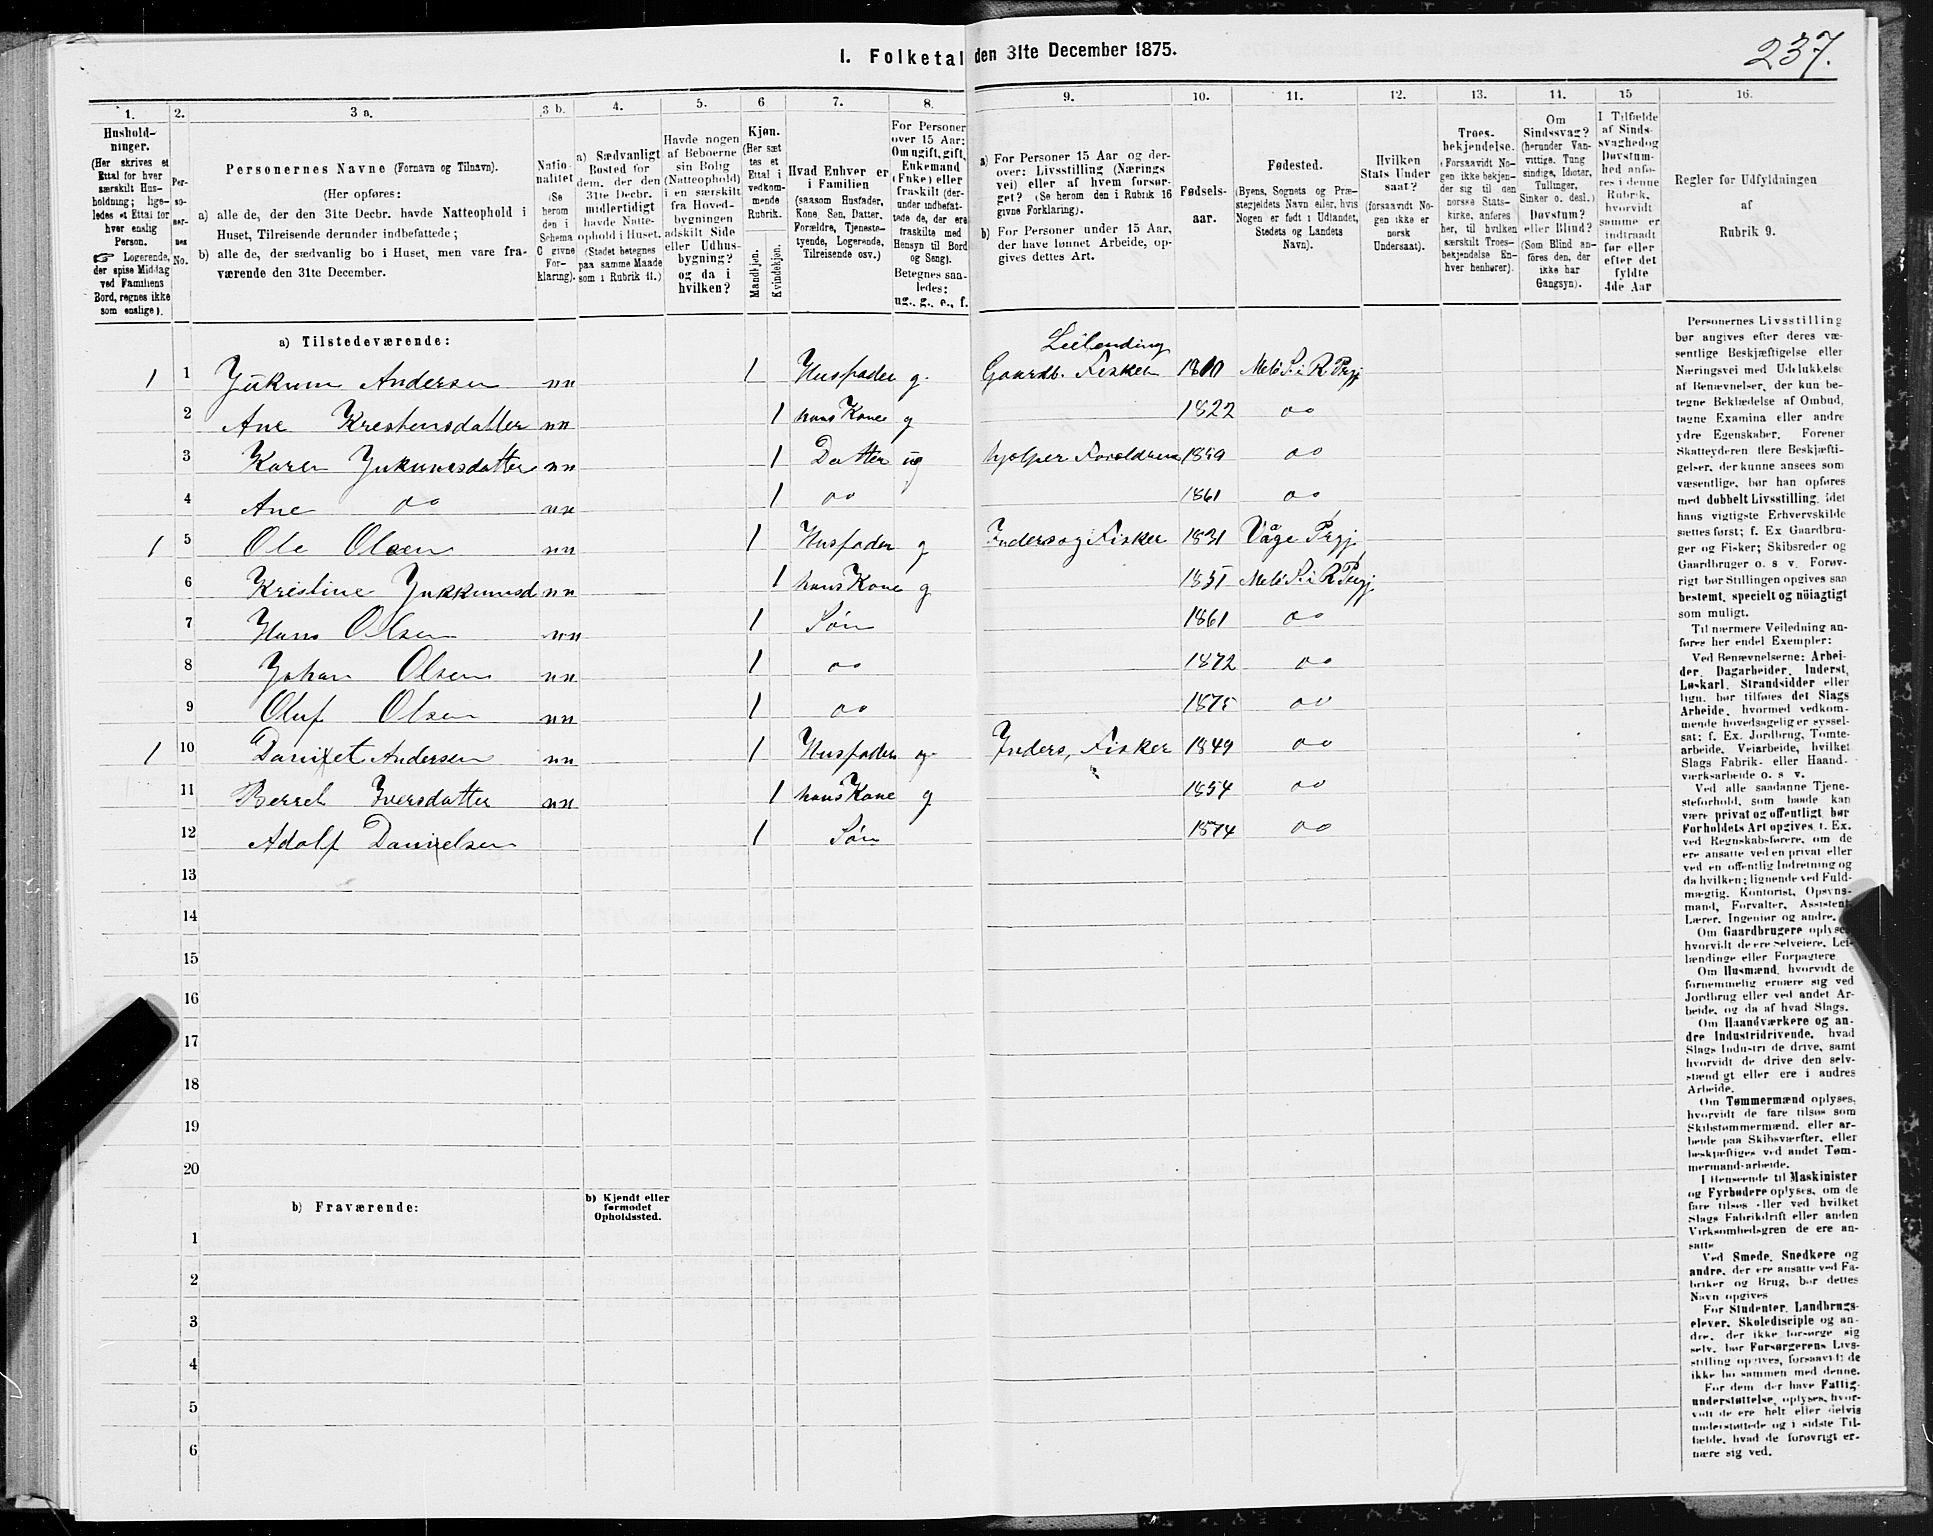 I. Folketal den 31te December 1875.
237.
1.
Hushold-
ninger.
(Her skrives et
Ettal for hver
særskilt Hus-
holdning; lige-
ledes et Ettal for
hver enslig
Person.
☞ Logerende,
der spise Middag
ved Familiens
Bord, regnes ikke
som enslige).
2.
Per-
so-
ner-
nes
No.
3 a.
Personernes Navne (Fornavn og Tilnavn).
(Her opføres:
a) alle de, der den 31te Decbr. havde Natteophold i
Huset, Tilreisende derunder indbefattede;
b) alle de, der sædvanlig bo i Huset, men vare fra-
værende den 31te December.
3 b.
Natio-
nalitet
(Se
herom
den i
Schema
C givne
For-
klaring).
4.
a) Sædvanligt
Bosted for
dem, der den
31te Decbr.
midlertidigt
havde Natte-
ophold i Huset.
(Stedet betegnes
paa samme Maade
som i Rubrik 11.)
5.
Havde nogen
af Beboerne
sin Bolig
(Natteophold)
i en særskilt
fra Hoved-
bygningen
adskilt Side
eller Udhus-
bygning?
og da i
hvilken?
6
Kjøn.
(Her sæt
tes et
Ettal i
vedkom-
mende
Rubrik.
Mandkjøn.
Kvindekjøn.
7.
Hvad Enhver er
i Familien
(saasom Husfader,
Kone, Søn, Datter,
Forældre, Tjeneste-
tyende, Logerende,
Tilreisende osv.)
8.
For Personer
over 15 Aar:
Om ugift, gift,
Enkemand
(Enke) eller
fraskilt (der-
under indbefat-
tede de, der ere
fraskilte med
Hensyn til Bord
og Seng).
Betegnes saa-
ledes:
ug., g., e., f.
9.
a) For Personer 15 Aar og der-
over: Livsstilling (Nærings
vei) eller af hvem forsør-
get? (Se herom den i Rubrik 16
givne Forklaring).
b) For Personer under 15 Aar,
der have lønnet Arbeide, op-
gives dettes Art.
10.
Fødsels-
aar.
11.
Fødested.
(Byens, Sognets og Præ-
stegjeldets Navn eller, hvis
Nogen er født i Udlandet,
Stedets og Landets
Navn).
12.
Hvilken
Stats Under
saat?
(forsaavidt No-
gen ikke er
norsk
Undersaat).
13.
Troes-
bekjendelse.
(Forsaavidt No-
gen ikke bekjen-
der sig til den
norske Stats-
kirke, anføres
her, til hvilken
særskilt Troes-
bekjendelse En-
hver henhører).
14.
Om
Sindssvag?
(herunder Van-
vittige, Tung
sindige, Idioter,
Tullinger,
Sinker o. desl.)
Døvstum?
eller Blind?
(Som Blind an-
føres den, der
ikke har
Gangsyn).
15
I Tilfælde
af Sinds-
svaghed og
Døvstum-
hed anfø-
res i denne
Rubrik,
hvorvidt
samme er
indtraadt
før eller
efter det
fyldte
4de Aar
16.
Regler for Udfyldningen
af
Rubrik 9.
a) Tilstedeværende:
Leilending
1 1 Jukum Andersen nn 1 Husfader g. Gaardb. Fisker 1810 Melö S. i R Prgj
2 Ane Krestensdatter nn 1 hans Kone g 1822 oo
3 Karen Jukumsdatter nn 1 Datter ug hjelper Foreldrene 1859 oo
4 Ane oo nn 1 oo 1861 oo
1 5 Ole Olsen nn 1 Husfader g Inders og Fisker 1831 Våge Prgj
6 Kristine Jukkumsd nn 1 hans Kone g Melö S. i R Prgj
7 Hans Olsen nn 1 Søn 1861 oo
8 Johan Olsen nn 1 oo 1872 oo
9 Oluf Olsen nn 1 oo 1875 oo
1 10 Andersen nn 1 Husfader g Inders, Fisker 1849 oo
11 Berret Iversdatter nn 1 hans Kone g 1854 oo
12 Adolf Danielsen 1 Søn 1874 oo
13
14
15
16
17
18
19
20
b) Fraværende:
b) Kjendt eller
formodet
Opholdssted.
1
2
3
4
5
6
Personernes Livsstilling
bør angives efter deres væ-
sentlige Beskjæftigelse eller
Næringsvei med Udelukkelse
af Benævnelser, der kun be-
tegne Beklædelse af Ombud,
tagne Examina eller andre
ydre Egenskaber. Forener
Skatteyderen flere Beskjæfti-
gelser, der kunne ansees som
væsentlige, bør han opføres
med dobbelt Livsstilling, idet
hans vigtigste Erhvervskilde
sættes først; f. Ex Gaardbru-
ger og Fisker; Skibsreder og
Gaardbruger o. s v. Forøv-
rigt bør Stillingen opgives saa
bestemt, specielt og nöiagtigt
som muligt.
Til nærmere Veiledning an-
føres her endel Exempler:
Ved Benævnelserne: Arbei-
der, Dagarbeider, Inderst,
Løskarl, Strandsidder eller
lign. bør tilføies det Slags
Arbeide, hvormed vedkom-
mende hovedsagelig er syssel-
sat; f. Ex. Jordbrug, Tomte-
arbeide, Veiarbeide, hvilket
Slags Fabrik- eller Haand-
værksarbeide o. s v.
Ved alle saadanne Tjene-
steforhold, som baade kan
være privat og offentligt, bør
Forholdets Art opgives, t. Ex.
ved Regnskabsførere, om de
ere ansatte ved en privat eller
ved en offentlig Indretning og
da hvilken; lignende ved Fuld-
mægtig, Kontorist, Opsyns-
mand, Forvalter, Assistent,
Lærer, Ingeniør og andre.
Om Gaardbrugere oplyses,
hvorvidt de ere Selveiere, Lei-
lændinge eller Forpagtere
Om Husmænd, hvorvidt de
fornemmelig ernære sig ved
Jordbrug eller ved andet Ar-
beide, og da af hvad Slags.
Om Haandværkere og an-
dre Industridrivende, hvad
Slags Industri de drive, samt
hvorvidt de drive den selv-
stændigt eller ere i andres
Arbeide.
Om Tømmermænd oplyses,
hvorvidt de fare tilsøs som
Skibstømmermænd, eller ar-
beide paa Skibsværfter, eller
beskjæftiges ved andet Tøm-
mermand-arbeide.
I Henseende til Maskinister
og Fyrbødere oplyses, om de
fare tilsøs eller ved hvilket
Slags Fabrikdrift eller anden
Virksomhedsgren de ere an-
satte
Ved Smede, Snedkere og
andre, der ere ansatte ved Fa-
briker og Brug, bør dettes
Navn opgives
For Studenter, Landbrugs-
elever, Skoledisciple og an-
dre, der ikke forsørge sig
selv, bør Forsørgerens Livs-
stilling opgives, forsaavidt de
ikke bo sammen med denne.
For dem, der have Fattig-
understøttelse, oplyses, hvor-
vidt de ere helt eller delvis
understøttede og i sidste Til-
fælde, hvad de forøvrigt er-
nære sig ved.